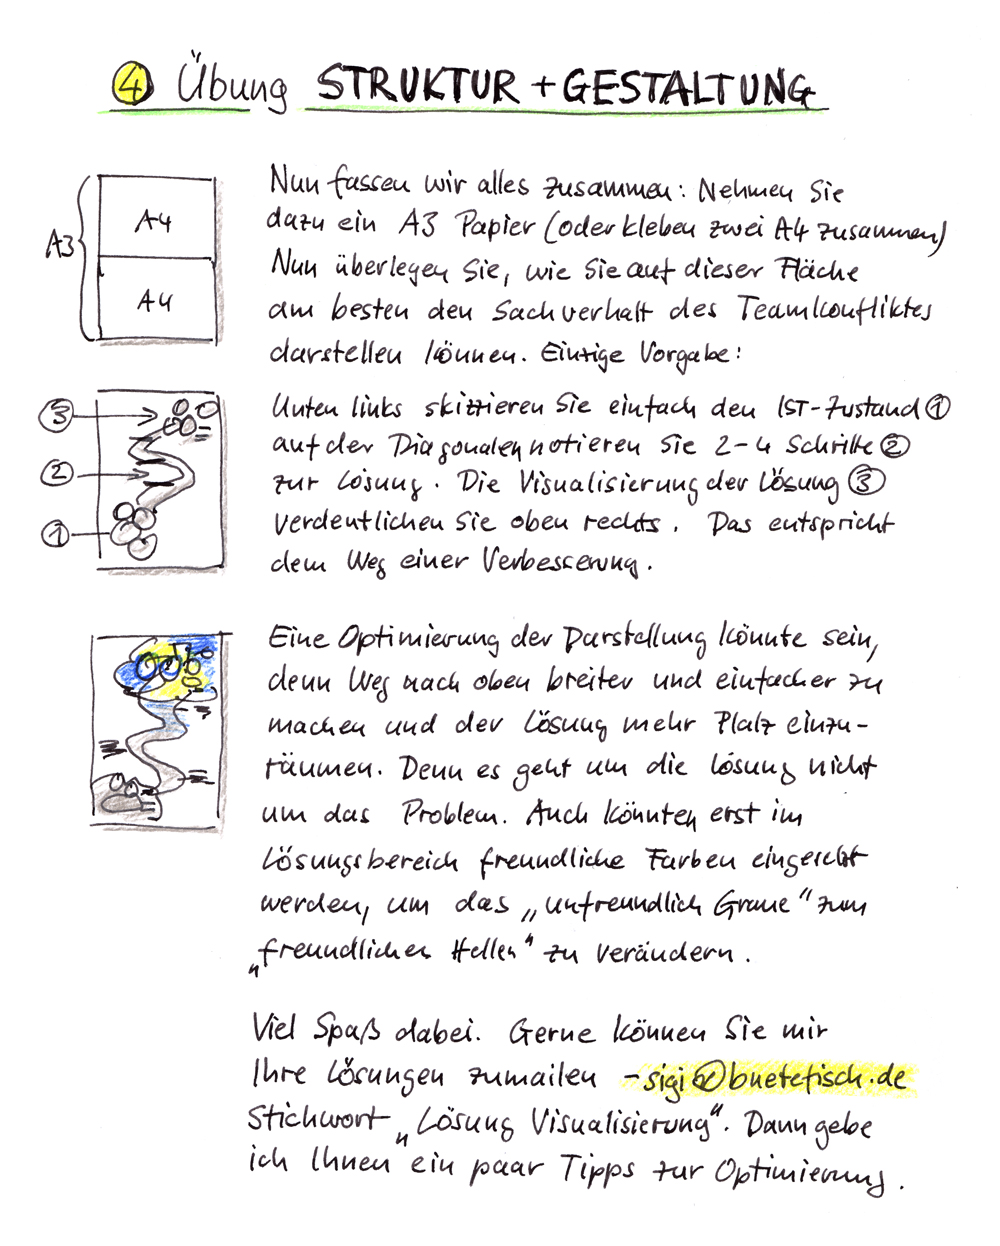 4 Übung STRUKTUR + GESTALTUNG
A3
A4
A4
Nun fassen wir alles zusammen: Nehmen Sie
dazu ein A3 Papier (oder kleben zwei A4 zusammen)
Nun überlegen Sie, wie Sie auf dieser Fläche
am besten den Sachverhalt des Teamkonfliktes
darstellen können. Einzige Vorgabe:
3
2
1
Unten links skizzieren Sie einfach den IST-Zustand 1
auf der Diagonalen notieren Sie 2-4 Schritte 2
zur Lösung. Die Visualisierung der Lösung 3
verdeutlichen Sie oben rechts. Das entspricht
dem Weg einer Verbesserung.
Eine Optimierung der Darstellung könnte sein,
denn Weg nach oben breiter und einfacher zu
machen und der Lösung mehr Platz einzu-
räumen. Denn es geht um die Lösung nicht
um das Problem. Auch könnten erst im
Lösungsbereich freundliche Farben eingesetzt
werden, um das „unfreundlich Graue“ zum
„freundlichen Hellen“ zu verändern.
Viel Spaß dabei. Gerne können Sie mir
Ihre Lösungen zumailen - sigi@buetefisch.de
Stichwort „Lösung Visualisierung“. Dann gebe
ich Ihnen ein paar Tipps zur Optimierung.